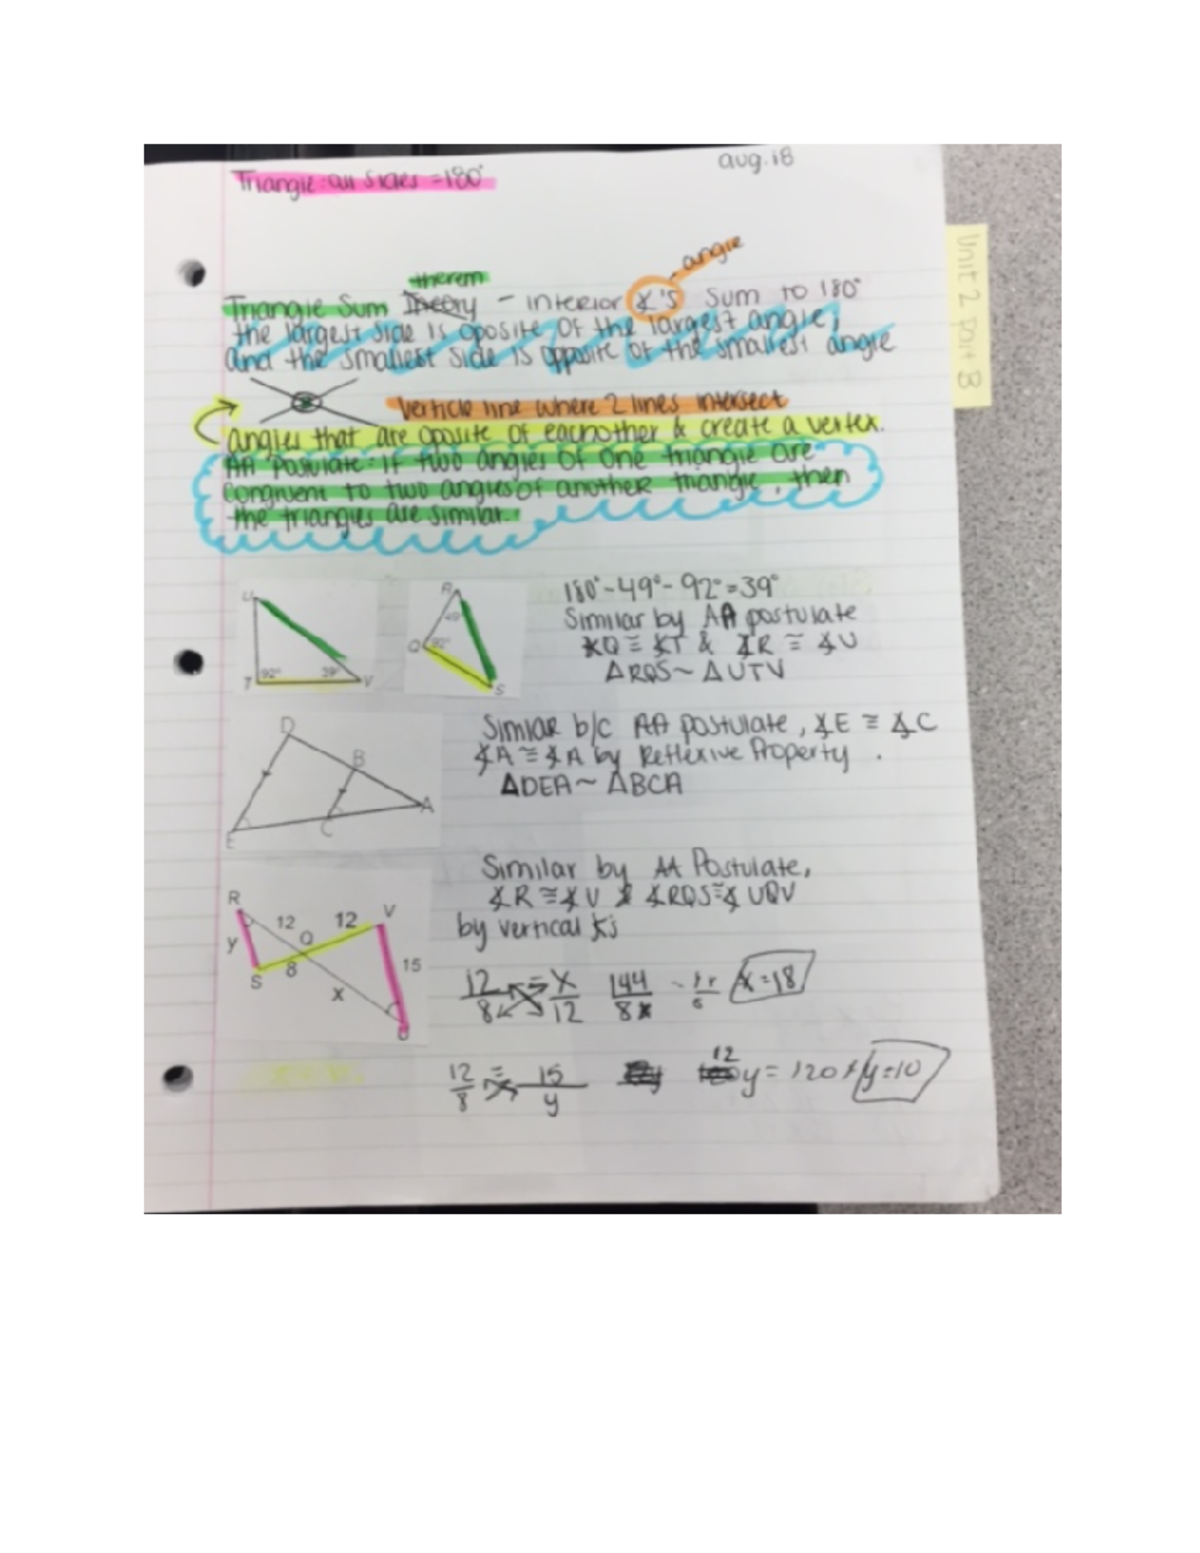 aug.18
Triangle: all sides =180°
therem
angle
Triangle Sum Theory - interior ∡'s sum to 180°
the largest side is oposite of the largest angle,
and the smallest side is opposite of the smallest angle
Verticle line where 2 lines intersect
angles that are oposite of eachother & create a vertex.
AA Postulate: if two angles of one triangle are
congruent to two angles of another triangle, then
the triangles are similar.
Unit 2 part B
U
92°
39°
T
V
R
49°
Q
92°
S
180°-49°-92°=39°
Similar by AA postulate
∡Q ≅ ∡T & ∡R ≅ ∡U
△RQS ~ △UTV
D
B
A
C
E
Simlar b/c AA postulate, ∡E ≅ ∡C
∡A ≅ ∡A by Reflexive Property.
△DEA ~ △BCA
R
12
12
V
y
Q
S
8
15
x
U
Similar by AA Postulate,
∡R ≅ ∡U & ∡RQS ≅ ∡UQV
by vertical ∡'s
12/8 = x/12 144/8 x=18
12/8 = 15/y 12y = 120 y=10